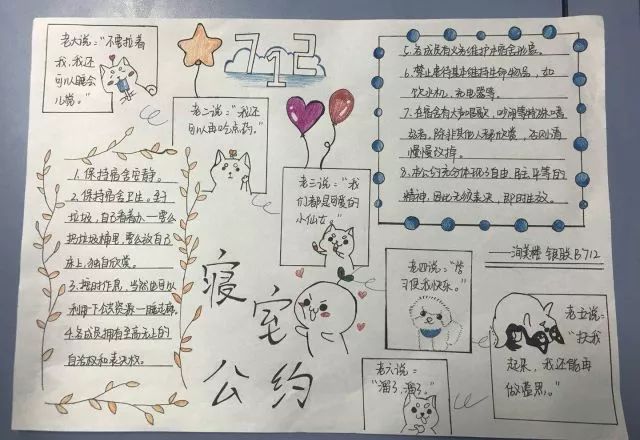 老大说:“不要拉着
我,我还
可以睡会
儿觉。”
712
老二说:“我还
可以再吃点的。”
老三说:“我
们都是可爱的
小仙女。”
1.保持宿舍安静。
2.保持宿舍卫生。至于
垃圾,自己看着办—要么
把垃圾桶里,要么放自己
床上,独自欣赏。
3.按时作息,当然也可以
利用下仅资源—睡走廊。
4.各成员拥有至高无上的
自治权和表决权。
5.各成员有义务维护本宿舍物品。
6.禁止虐待基本维持生命物品,如
饮水机、充电器等。
7.在宿舍有大声唱歌,吵闹等特殊嗜
好者,除非其他人都欣赏,否则请
慢慢改掉。
8.本公约充分体现了自由、民主、平等的
精神,因此无须表决,即时生效。
——洵美楼 银联B712
寝
室
公约
老四说:“学
习使我快乐。”
老五说:
“扶我
起来,我还能再
做蛋界。”
老六说:
“溜了,溜了。”